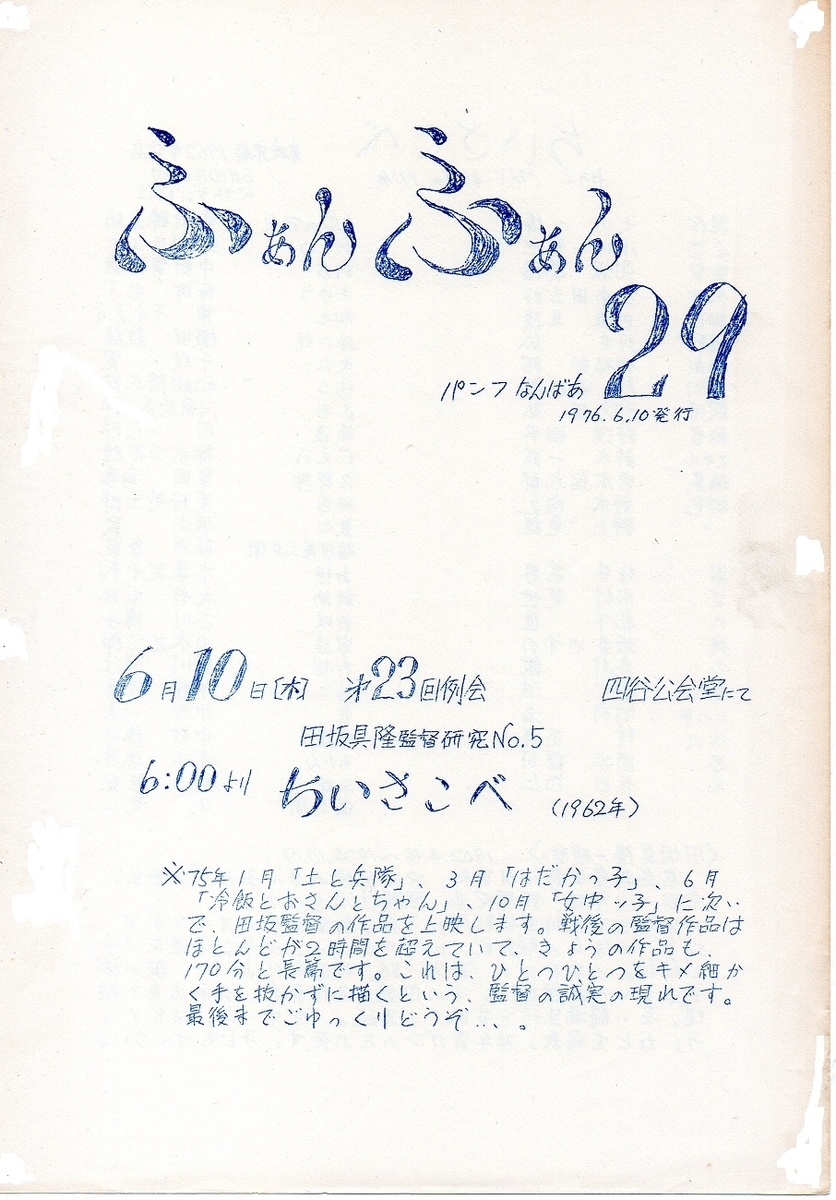 ふぁんふぁん
29
パンフなんばあ
1976.6.10発行
6月10日[木] 第23回例会 四谷公会堂にて
田坂具隆監督研究No.5
6:00より ちいさこべ (1962年)
※75年1月「土と兵隊」、3月「はだかっ子」、6月
「冷飯とおさんとちゃん」、10月「女中ッ子」に次い
で、田坂監督の作品を上映します。戦後の監督作品は
ほとんどが2時間を超えていて、きょうの作品も、
170分と長篇です。これは、ひとつひとつをキメ細か
く手を抜かずに描くという、監督の誠実の現れです。
最後までごゆっくりどうぞ…。